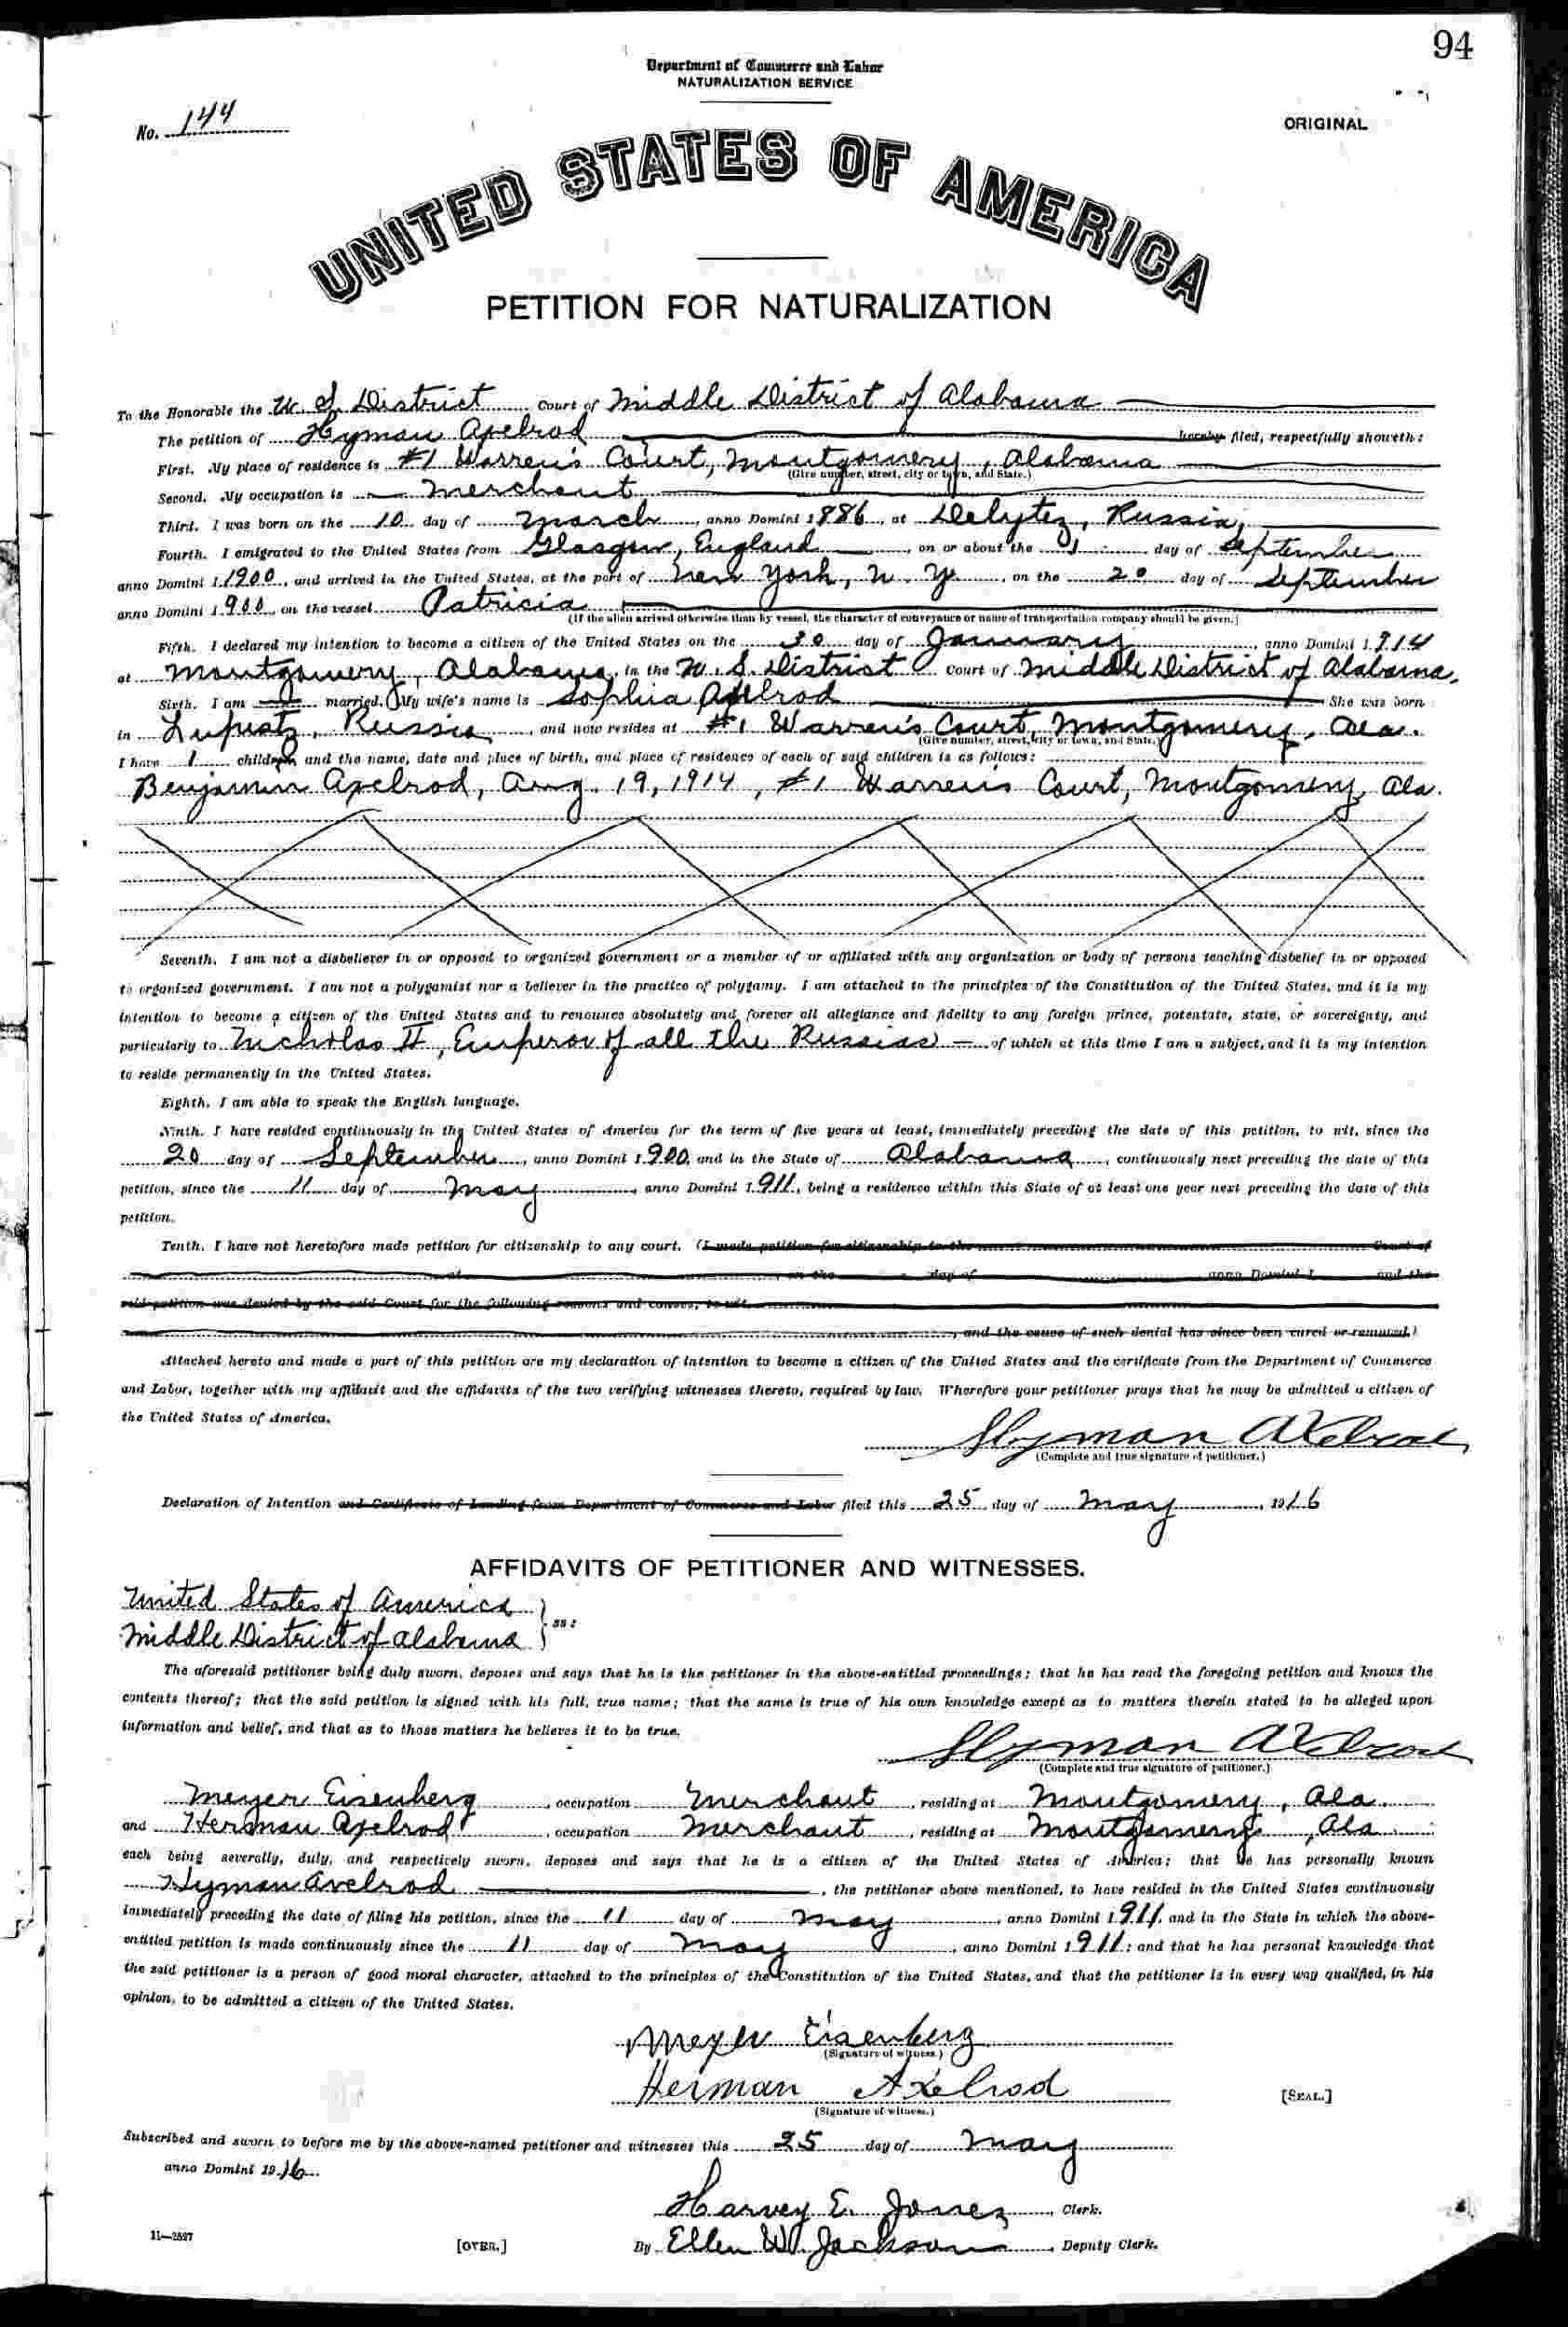 94
Department of Commerce and Labor
NATURALIZATION SERVICE
No. 144
ORIGINAL
UNITED STATES OF AMERICA
PETITION FOR NATURALIZATION
To the Honorable the U. S. District Court of Middle District of Alabama
The petition of Hyman Axelrod hereby filed, respectfully showeth:
First. My place of residence is #1 Warren's Court, Montgomery, Alabama
(Give number, street, city or town, and State.)
Second. My occupation is Merchant
Third. I was born on the 10 day of March, anno Domini 1886, at Russia,
Fourth. I emigrated to the United States from Glasgow, England, on or about the 1 day of September
anno Domini 1 1900, and arrived in the United States, at the port of New York, N. Y., on the 20 day of September
anno Domini 1900, on the vessel Patricia
(If the alien arrived otherwise than by vessel, the character of conveyance or name of transportation company should be given.)
Fifth. I declared my intention to become a citizen of the United States on the 30 day of January, anno Domini 1914
at Montgomery, Alabama, in the U. S. District Court of Middle District of Alabama,
Sixth. I am married. My wife's name is Sophia Axelrod She was born
in Russia, and now resides at #1 Warren's Court, Montgomery, Ala.
(Give number, street, city or town, and State.)
I have 1 children and the name, date and place of birth, and place of residence of each of said children is as follows:
Benjamin Axelrod, Aug. 19, 1914, #1 Warren's Court, Montgomery, Ala.
Seventh. I am not a disbeliever in or opposed to organized government or a member of or affiliated with any organization or body of persons teaching disbelief in or opposed
to organized government. I am not a polygamist nor a believer in the practice of polygamy. I am attached to the principles of the Constitution of the United States, and it is my
intention to become a citizen of the United States and to renounce absolutely and forever all allegiance and fidelity to any foreign prince, potentate, state, or sovereignty, and
particularly to Nicholas II, Emperor of all the Russias of which at this time I am a subject, and it is my intention
to reside permanently in the United States.
Eighth. I am able to speak the English language.
Ninth. I have resided continuously in the United States of America for the term of five years at least, immediately preceding the date of this petition, to wit, since the
20 day of September, anno Domini 1900, and in the State of Alabama, continuously next preceding the date of this
petition, since the 11 day of May, anno Domini 1911, being a residence within this State of at least one year next preceding the date of this
petition.
Tenth. I have not heretofore made petition for citizenship to any court. (I made petition for citizenship to the Court of
at on the day of anno Domini 1 and the
said petition was denied by the said Court for the following reasons and causes, to wit,
, and the cause of such denial has since been cured or removed.)
Attached hereto and made a part of this petition are my declaration of intention to become a citizen of the United States and the certificate from the Department of Commerce
and Labor, together with my affidavit and the affidavits of the two verifying witnesses thereto, required by law. Wherefore your petitioner prays that he may be admitted a citizen of
the United States of America.
Hyman Axelrod
(Complete and true signature of petitioner.)
Declaration of Intention and Certificate of Landing from Department of Commerce and Labor filed this 25 day of May, 1916
AFFIDAVITS OF PETITIONER AND WITNESSES.
United States of America
Middle District of Alabama } ss:
The aforesaid petitioner being duly sworn, deposes and says that he is the petitioner in the above-entitled proceedings; that he has read the foregoing petition and knows the
contents thereof; that the said petition is signed with his full, true name; that the same is true of his own knowledge except as to matters therein stated to be alleged upon
information and belief, and that as to those matters he believes it to be true.
Hyman Axelrod
(Complete and true signature of petitioner.)
Meyer Eisenberg, occupation Merchant, residing at Montgomery, Ala.
and Herman Axelrod, occupation Merchant, residing at Montgomery, Ala
each being severally, duly, and respectively sworn, deposes and says that he is a citizen of the United States of America; that he has personally known
Hyman Axelrod, the petitioner above mentioned, to have resided in the United States continuously
immediately preceding the date of filing his petition, since the 11 day of May, anno Domini 1911, and in the State in which the above-
entitled petition is made continuously since the 11 day of May, anno Domini 1911; and that he has personal knowledge that
the said petitioner is a person of good moral character, attached to the principles of the Constitution of the United States, and that the petitioner is in every way qualified, in his
opinion, to be admitted a citizen of the United States.
Meyer Eisenberg
(Signature of witness.)
Herman Axelrod
(Signature of witness.)
[SEAL.]
Subscribed and sworn to before me by the above-named petitioner and witnesses this 25 day of May
anno Domini 1916
Harvey E. Jones, Clerk.
11—2527
[OVER.]
By Ellen W. Jackson, Deputy Clerk.